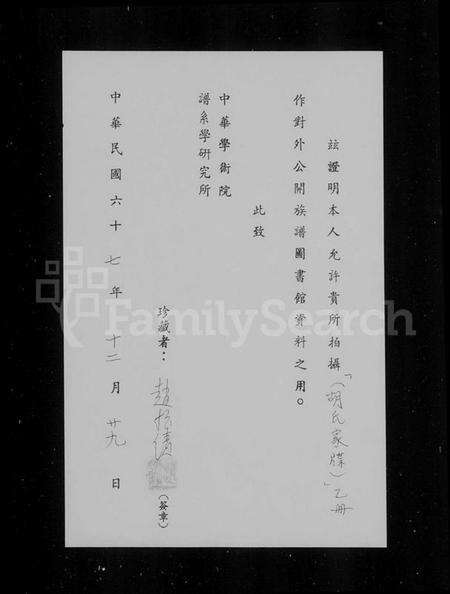 茲證明本人允許貴所拍攝「(胡氏家牒)」乙册
作對外公開族譜圖書館資料之用。
此致
中華學術院
譜系學研究所
珍藏者：趙振績
(簽章)
中華民國六十七年十二月廿九日
FamilySearch